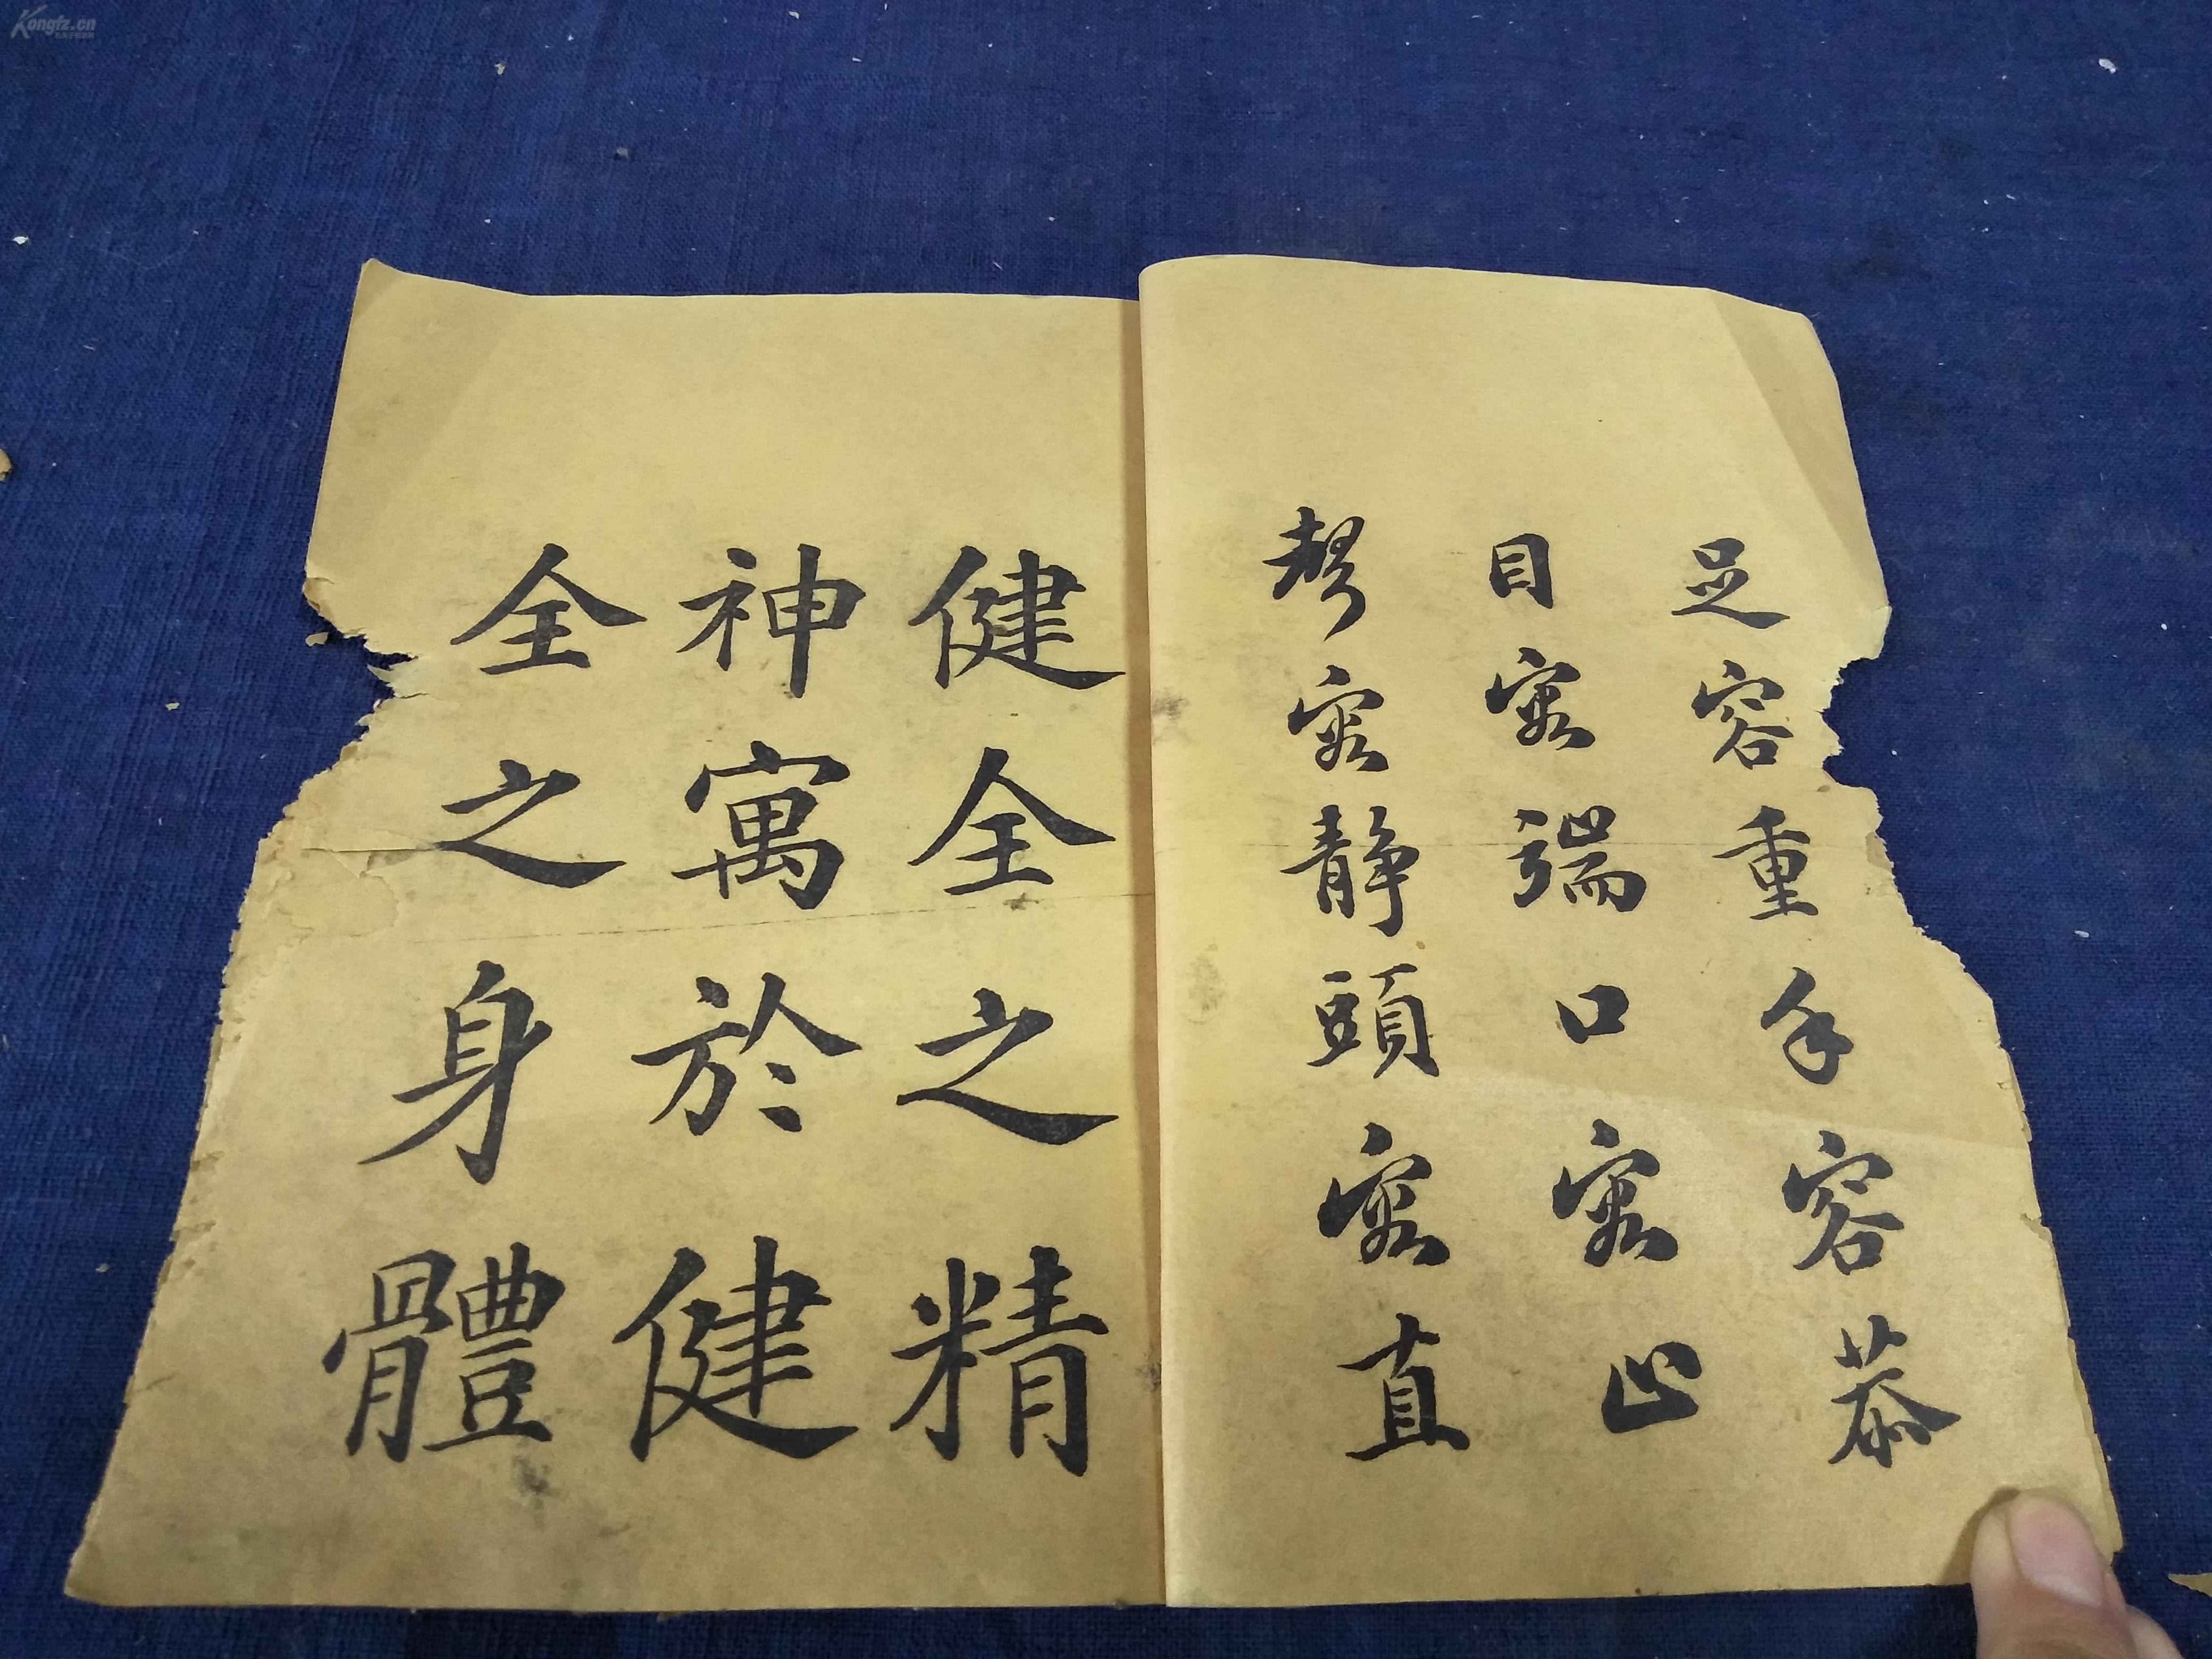 足容重手容恭
目容端口容止
聲容静頭容直
健全之精
神寓於健
全之身體
Kongfz.cn